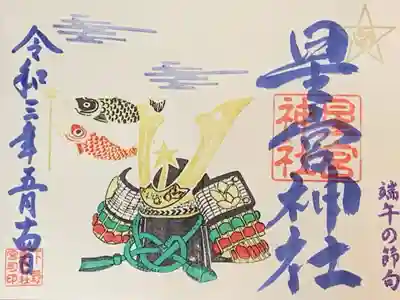 星宮神社
星宮
神社
端午の節句
令和三年五月十四日